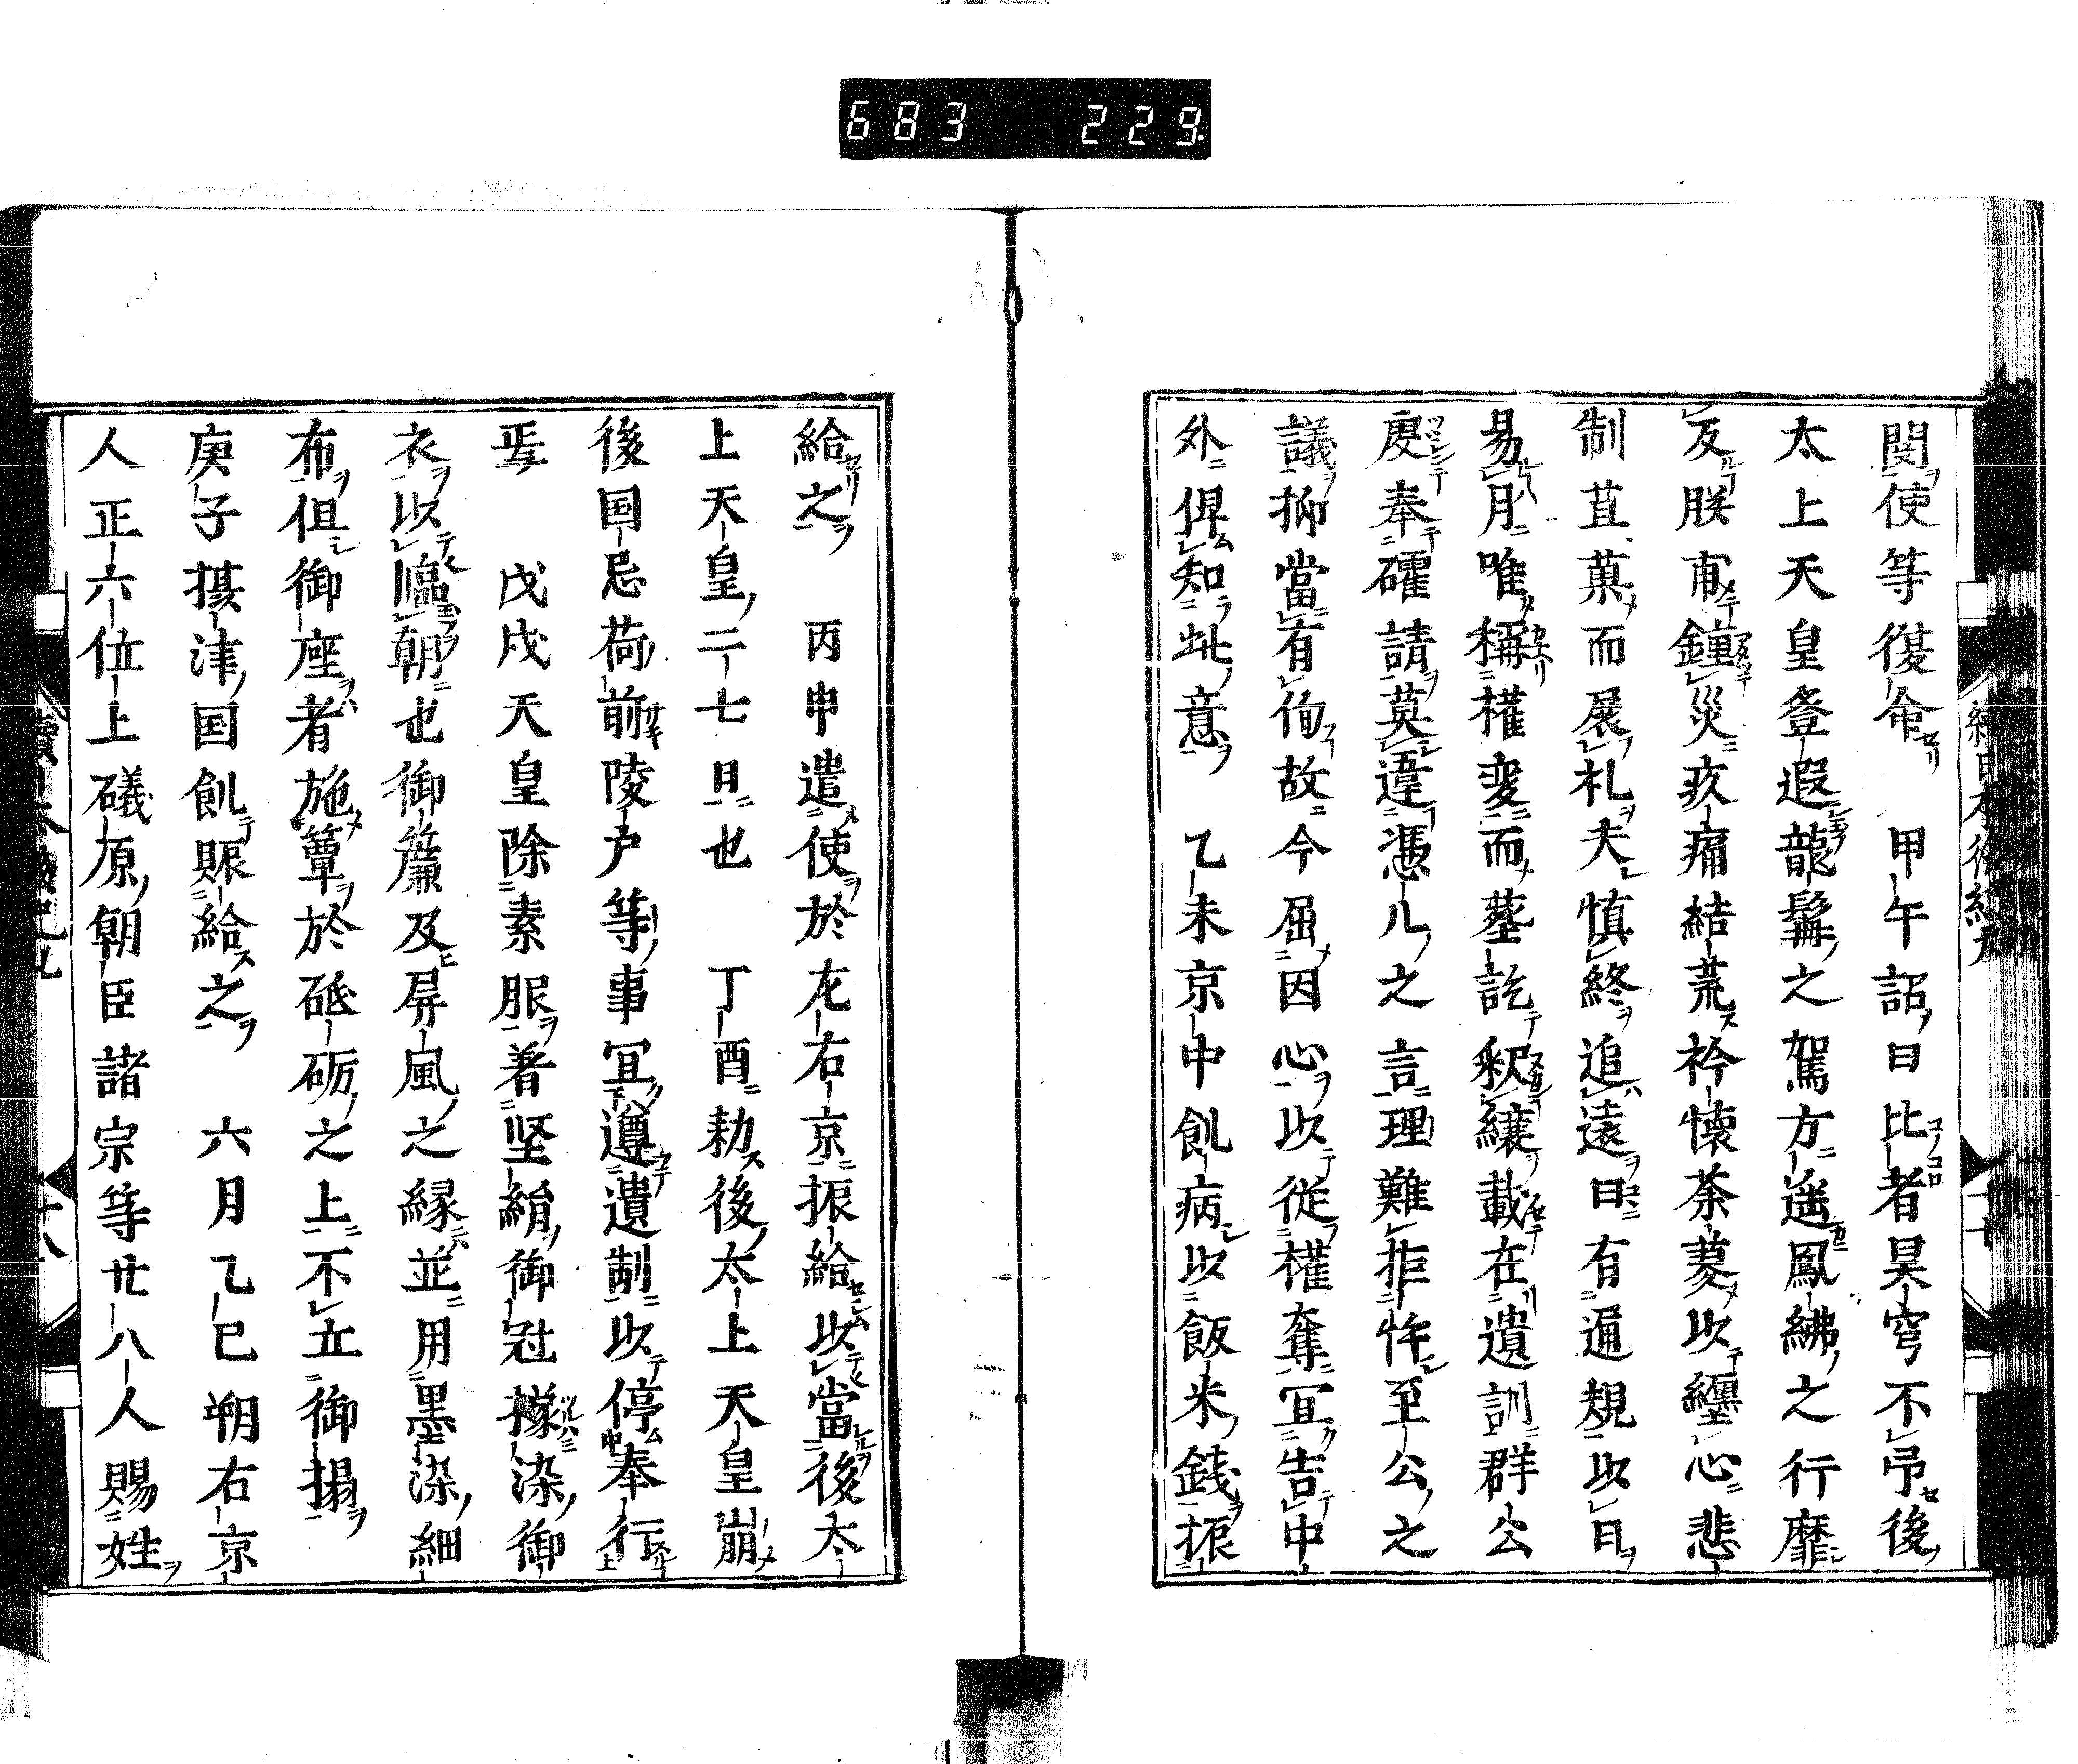 683 229
関使等復命 甲午詔曰比者昊穹不弔後
太上天皇登遐龍髯之駕方遥鳳紼之行靡
反朕甫鍾災疚痛結荒衿懐荼蓼以纒心悲
制苴蒅而展礼夫慎終追遠曰有通規以日
易月唯稱権変而塟訖釈縗載在遺訓群公
慶奉確請莫違憑几之言理難拒忤至公之
議抑當有侚故今屈因心以従権奪冝告中
外俾知此意 乙未京中飢病以飯米錢振
給之 丙申遣使於左右京振給以當後太
上天皇二七日也 丁酉勅後太上天皇崩
後国忌荷前陵戸等事冝遵遺制以停奉行
焉 戊戌天皇除素服著堅絹御冠橡染御
衣以臨朝也御簾及屏風之縁並用墨染細
布但御座者施簟於砥砺之上不立御榻
庚子摂津国飢賑給之 六月乙巳朔右京
人正六位上礒原朝臣諸宗等廿八人賜姓